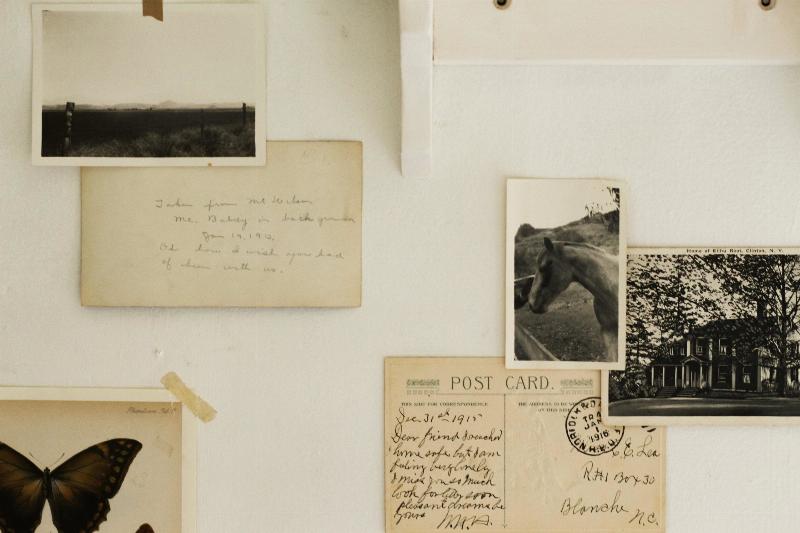 Taken from Mt Wilson
Mt. Baldy in background
Jan 19, 1912.
Oh how I wish you had
of been with us.
Home of Elihu Root, Clinton, N. Y.
POST CARD.
THIS SIDE FOR CORRESPONDENCE
THE ADDRESS TO BE
ON THIS SIDE
Dec. 31st 1915
Dear friend reached
home safe but I am
feeling very lonely
I miss you so much
look for
soon
pleasant dreams
yours
TR
JAN
1
1916
C. Lea
R#1 Box 30
Blanche
N.C.